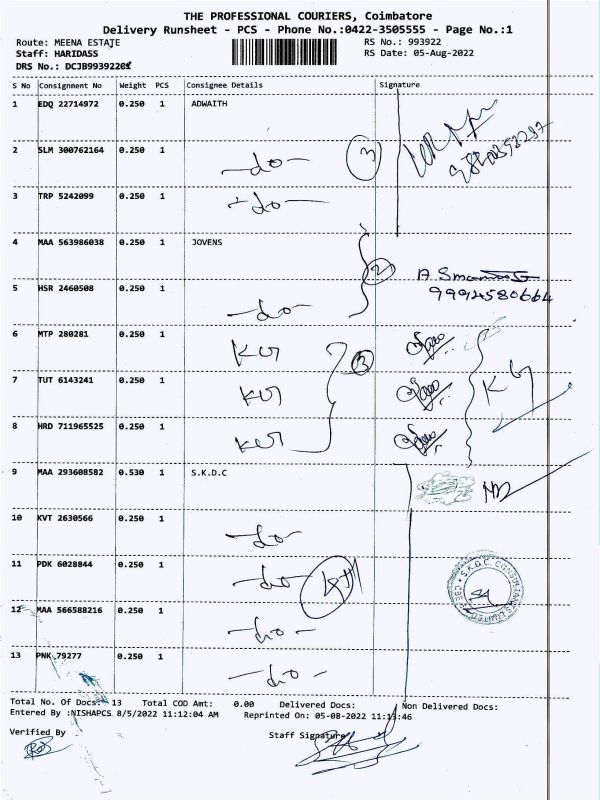 THE PROFESSIONAL COURIERS, Coimbatore
Delivery Runsheet - PCS - Phone No.:0422-3505555 - Page No.:1
Route: MEENA ESTATE RS No.: 993922
Staff: HARIDASS RS Date: 05-Aug-2022
DRS No.: DCJB9939220
S No Consignment No Weight PCS Consignee Details Signature
1 EDQ 22714972 0.250 1 ADWAITH
2 SLM 300762164 0.250 1 -do- 3
3 TRP 5242099 0.250 1 -do-
4 MAA 563986038 0.250 1 JOVENS
2
9994580664
5 HSR 2460508 0.250 1 -do-
6 MTP 280281 0.250 1 KG 3
7 TUT 6143241 0.250 1 KG KG
8 HRD 711965525 0.250 1 KG
9 MAA 293608582 0.530 1 S.K.D.C
10 KVT 2630566 0.250 1 -do-
11 PDK 6028844 0.250 1 -do-
12 MAA 566588216 0.250 1 -do-
13 PNK 79277 0.250 1 -do-
Total No. Of Docs: 13 Total COD Amt: 0.00 Delivered Docs: Non Delivered Docs:
Entered By :NISHAPCS 8/5/2022 11:12:04 AM Reprinted On: 05-08-2022 11:13:46
Verified By Staff Signature